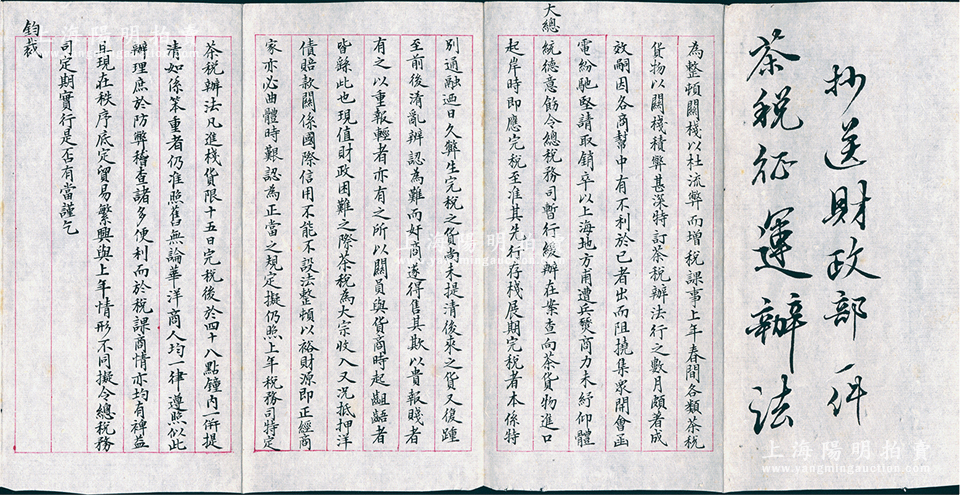 抄送財政部件
茶稅征運辦法
為整頓關棧以杜流弊而增稅課事上年春間各類茶稅
貨物以關棧積弊甚深特訂茶稅辦法行之數月頗著成
效嗣因各商幫中有不利於己者出而阻撓集眾開會函
電紛馳堅請取銷卒以上海地方甫遭兵燹商力未紓仰體
大總
統德意飭令總稅務司暫行緩辦在案查向茶貨物進口
起岸時即應完稅至准其先行存棧展期完稅者本係特
別通融迺日久弊生完稅之貨尚未提清後來之貨又復踵
至前後淆亂辨認為難而奸商遂得售其欺以貴報賤者
有之以重報輕者亦有之所以關員與貨商時起齟齬者
皆緜此也現值財政困難之際茶稅為大宗收入又況抵押洋
債賠款關係國際信用不能不設法整頓以裕財源即正經商
家亦必曲體時艱認為正當之規定擬仍照上年稅務司特定
茶稅辦法凡進棧貨限十五日完稅後於四十八點鐘內一併提
清如係笨重者仍准照舊無論華洋商人均一律遵照似此
辦理庶於防弊稽查諸多便利而於稅課商情亦均有裨益
且現在秩序底定貿易繁興與上年情形不同擬令總稅務
司定期實行是否有當謹乞
鈞裁
上海陽明拍賣
www.yangmingauction.com
上海陽明拍賣
www.yangmingauction.com